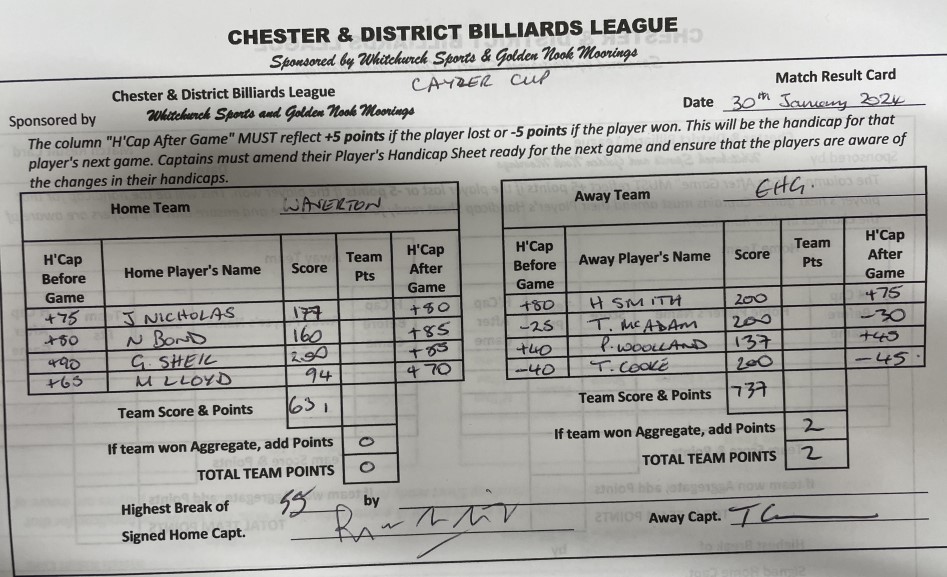 CHESTER & DISTRICT BILLIARDS LEAGUE
Sponsored by Whitchurch Sports & Golden Nook Moorings
CAYZER CUP
Match Result Card
Chester & District Billiards League
Date 30th January 2024
Sponsored by Whitchurch Sports and Golden Nook Moorings
The column "H'Cap After Game" MUST reflect +5 points if the player lost or -5 points if the player won. This will be the handicap for that
player's next game. Captains must amend their Player's Handicap Sheet ready for the next game and ensure that the players are aware of
the changes in their handicaps.
Home Team WAVERTON
H'Cap Before Game Home Player's Name Score Team Pts H'Cap After Game
+75 J NICHOLAS 177 +80
+80 N BOND 160 +85
+90 G. SHEIL 200 +85
+65 M LLOYD 94 +70
Team Score & Points 631
If team won Aggregate, add Points 0
TOTAL TEAM POINTS 0
Away Team EHG.
H'Cap Before Game Away Player's Name Score Team Pts H'Cap After Game
+80 H SMITH 200 +75
-25 T. McADAM 200 -30
+40 P. WOOLLAND 137 +45
-40 T. COOKE 200 -45
Team Score & Points 737
If team won Aggregate, add Points 2
TOTAL TEAM POINTS 2
Highest Break of by
Signed Home Capt.
Away Capt. TC